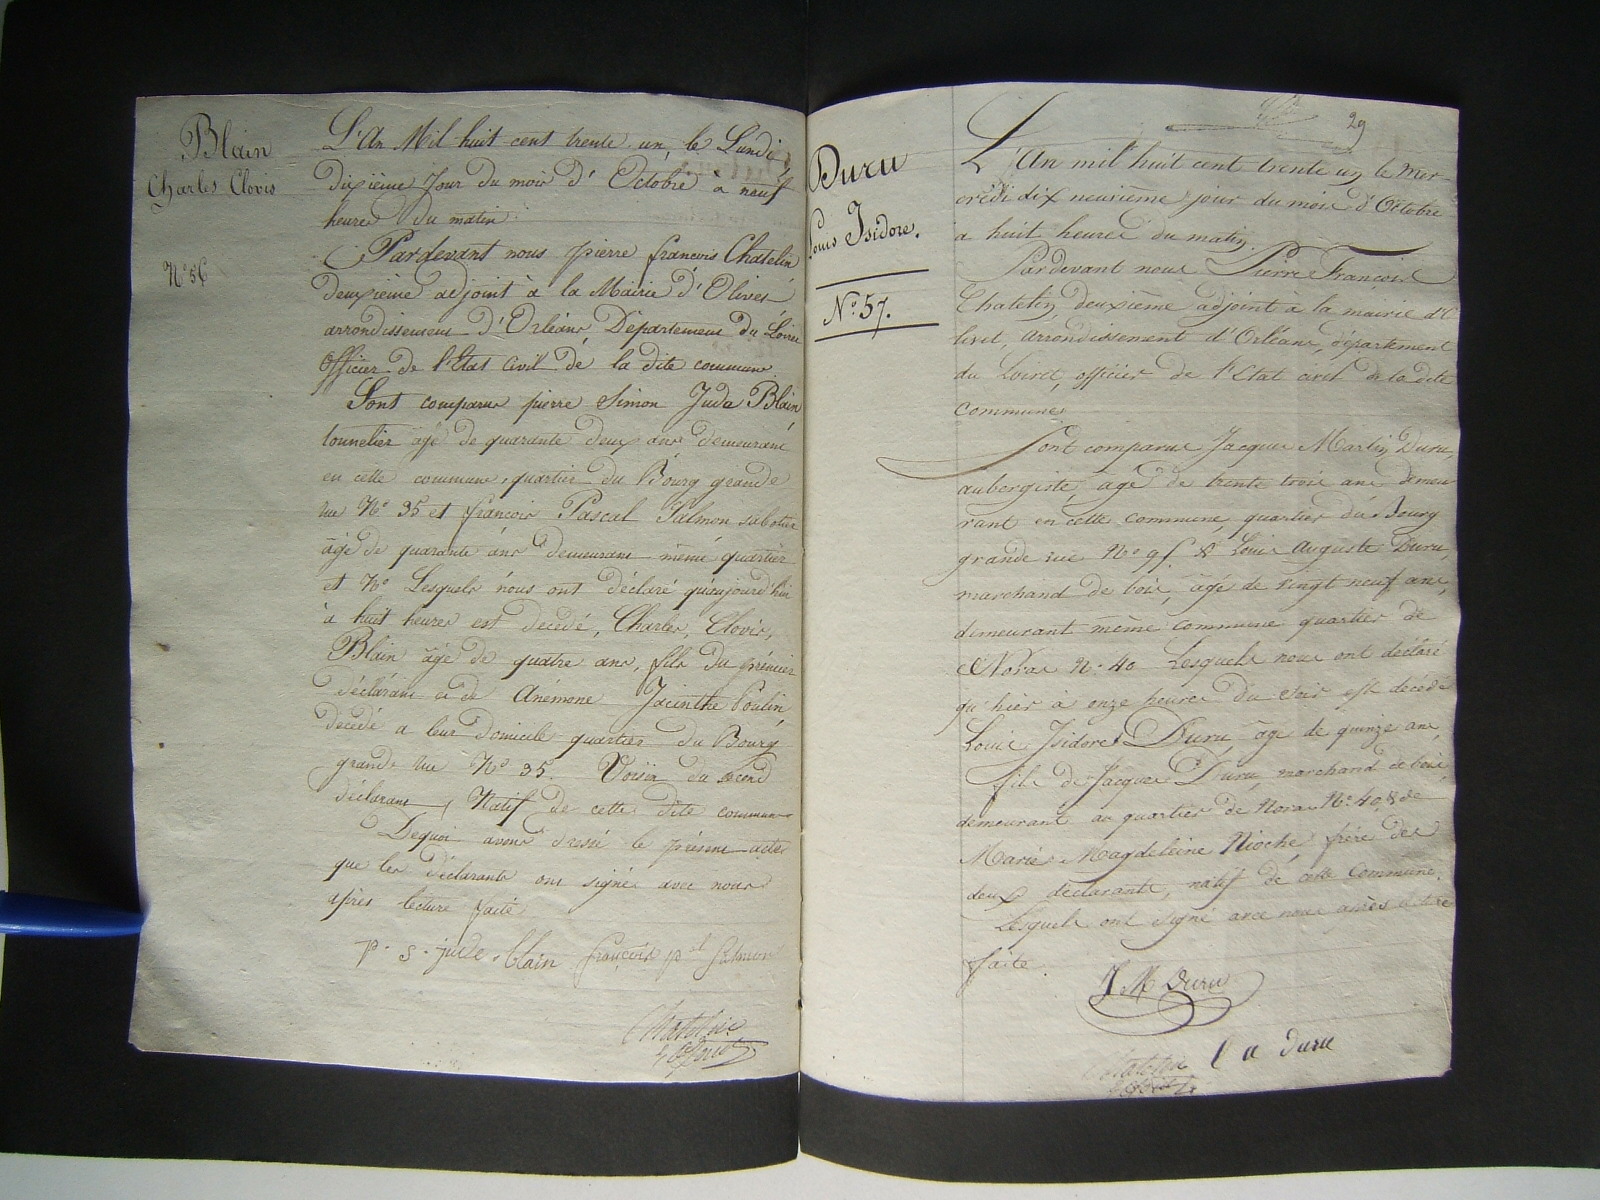 Blain
Charles Clovis
N° 56
L'An Mil huit cent trente un, le Lundi
dixième Jour du mois d'Octobre à neuf
heures du matin
Pardevant nous pierre françois Chatelin
deuxième adjoint à la Mairie d'Olivet
arrondissement d'Orléans, Département du Loiret
Officier de l'Etat Civil de la dite commune
Sont comparus pierre Simon Juda Blain
tonnelier âgé de quarante deux ans demeurant
en cette commune, quartier du Bourg grande
rue N° 35 et françois Pascal Salmon sabotier
âgé de quarante ans demeurant même quartier
et N° Lesquels nous ont déclaré qu'aujourd'hui
à huit heures est décédé, Charles, Clovis,
Blain âgé de quatre ans, fils du prémier
déclarant et de Anémone Jacinthe Poulin
décédé a leur domicile quartier du Bourg
grande rue N° 35. Voisin du second
déclarant, Natif de cette dite commune
Dequoi avons dressé le présent acte
que les déclarants ont signé avec nous
après lecture faite
p. s. jude. blain françois p al Salmon
Chatelin
adjoint
29
Duru
Louis Isidore.
N° 57.
L'An mil huit cent trente un le Mer-
credi dix neuvième jour du mois d'Octobre
a huit heures du matin.
Pardevant nous Pierre François
Chatelin, deuxième adjoint à la mairie d'O
livet, arrondissement d'Orléans, département
du Loiret, officier de l'Etat civil de la dite
commune
Sont comparus Jacques Martin Duru,
aubergiste, âgé de trente trois ans demeu
rant en cette commune quartier du Bourg
grande rue N° & Louis Auguste Duru,
marchand de bois, âgé de vingt neuf ans,
demeurant même commune quartier de
Noras N° 40 Lesquels nous ont déclaré
qu'hier à onze heures du soir est décédé
Louis Isidore Duru âgé de quinze ans,
fils de Jacques Duru, marchand de bois,
demeurant au quartier de Noras N° 40, & de
Marie Magdeleine Rioche frère des
deux déclarants, natif de cette Commune.
Lesquels ont signé avec nous après lecture
faite.
J M Duru
l a duru
Chatelin
adjoint